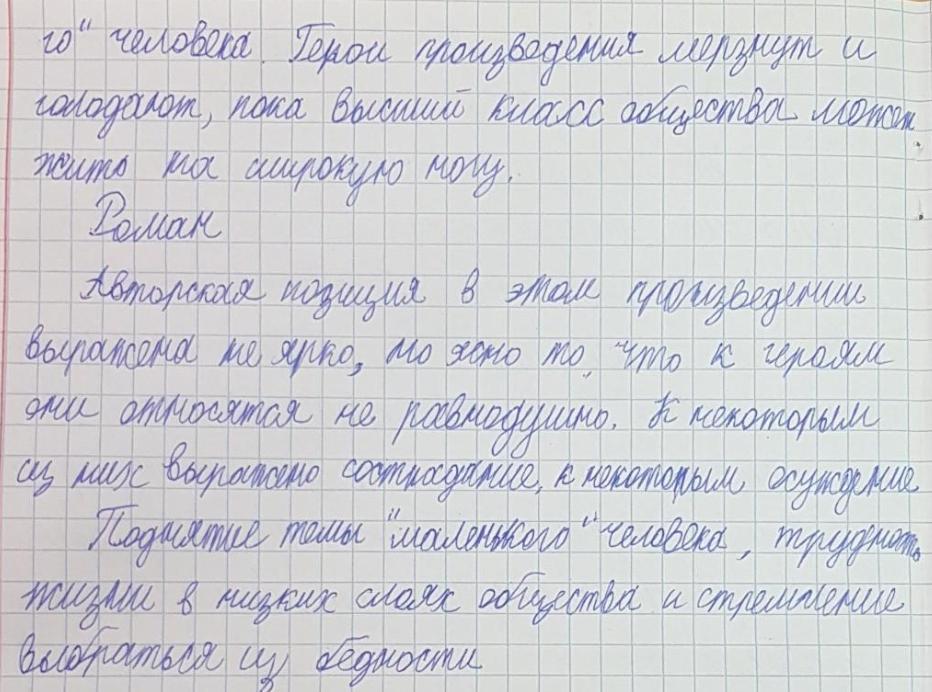 го" человека. Герои произведения мерзнут и
голодают, пока высший класс общества может
жить на широкую ногу.
Роман
Авторская позиция в этом произведении
выражена не ярко, но ясно то, что к героям
они относятся не равнодушно. К некоторым
из них выражено сострадание, к некоторым осуждение
Поднятие темы "маленького" человека, трудность
жизни в низких слоях общества и стремление
выбраться из бедности